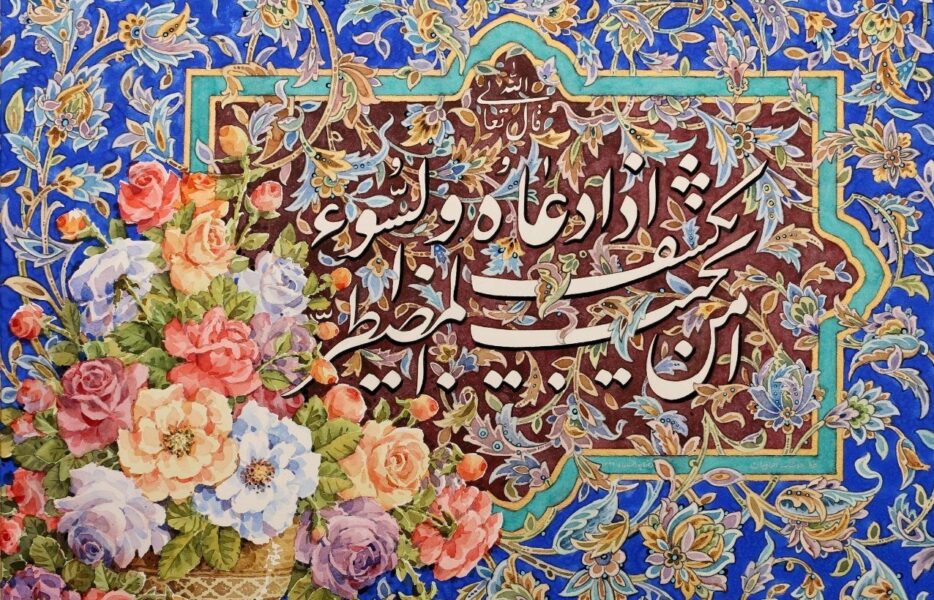 قال الله تعالی
امن یجیب المضطرّ
اذا دعاه و یکشف السّوء